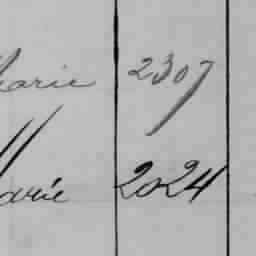 Marie 2307
Marie 2024